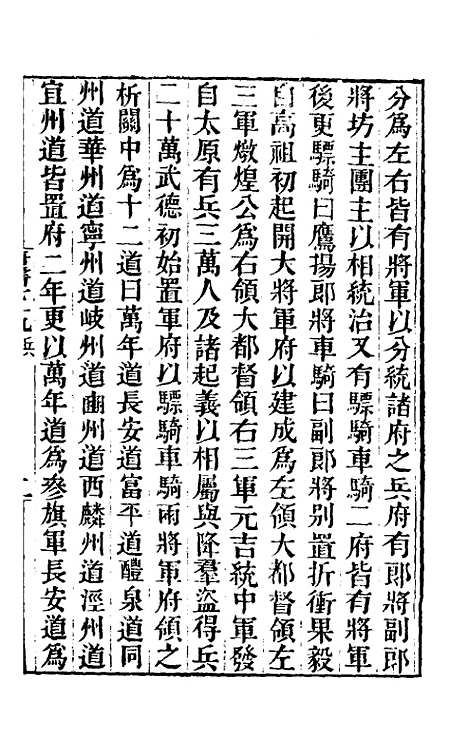 分爲左右皆有將軍以分統諸府之兵府有郎將副郎
將坊主團主以相統治又有驃騎車騎二府皆有將軍
後更驃騎曰鷹揚郎將車騎曰副郎將別置折衝果毅
自高祖初起開大將軍府以建成爲左領大都督領左
三軍燉煌公爲右領大都督領右三軍元吉統中軍發
自太原有兵三萬人及諸起義以相屬與降羣盜得兵
二十萬武德初始置軍府以驃騎車騎兩將軍府領之
析關中爲十二道曰萬年道長安道富平道醴泉道同
州道華州道寧州道岐州道豳州道西麟州道涇州道
宜州道皆置府二年更以萬年道爲參旗軍長安道爲
兵